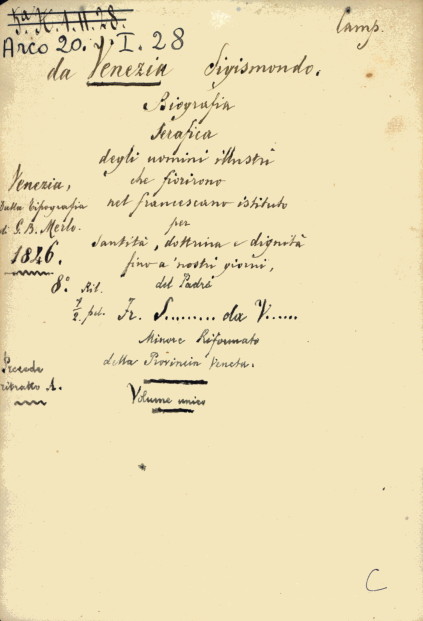 Camp.
Arco 20. I. 28
da Venezia Sigismondo.
Biografia
Serafica
degli uomini illustri
che fiorirono
nel francescano istituto
per
santità, dottrina e dignità
fino a' nostri giorni,
del Padre
Fr. S......... da V......
Minore Riformato
della Provincia Veneta.
Volume unico
Venezia,
Dalla tipografia
di G. B. Merlo.
1846.
8°. Ril.
1/2. pel.
Precede
ritratto A.
C